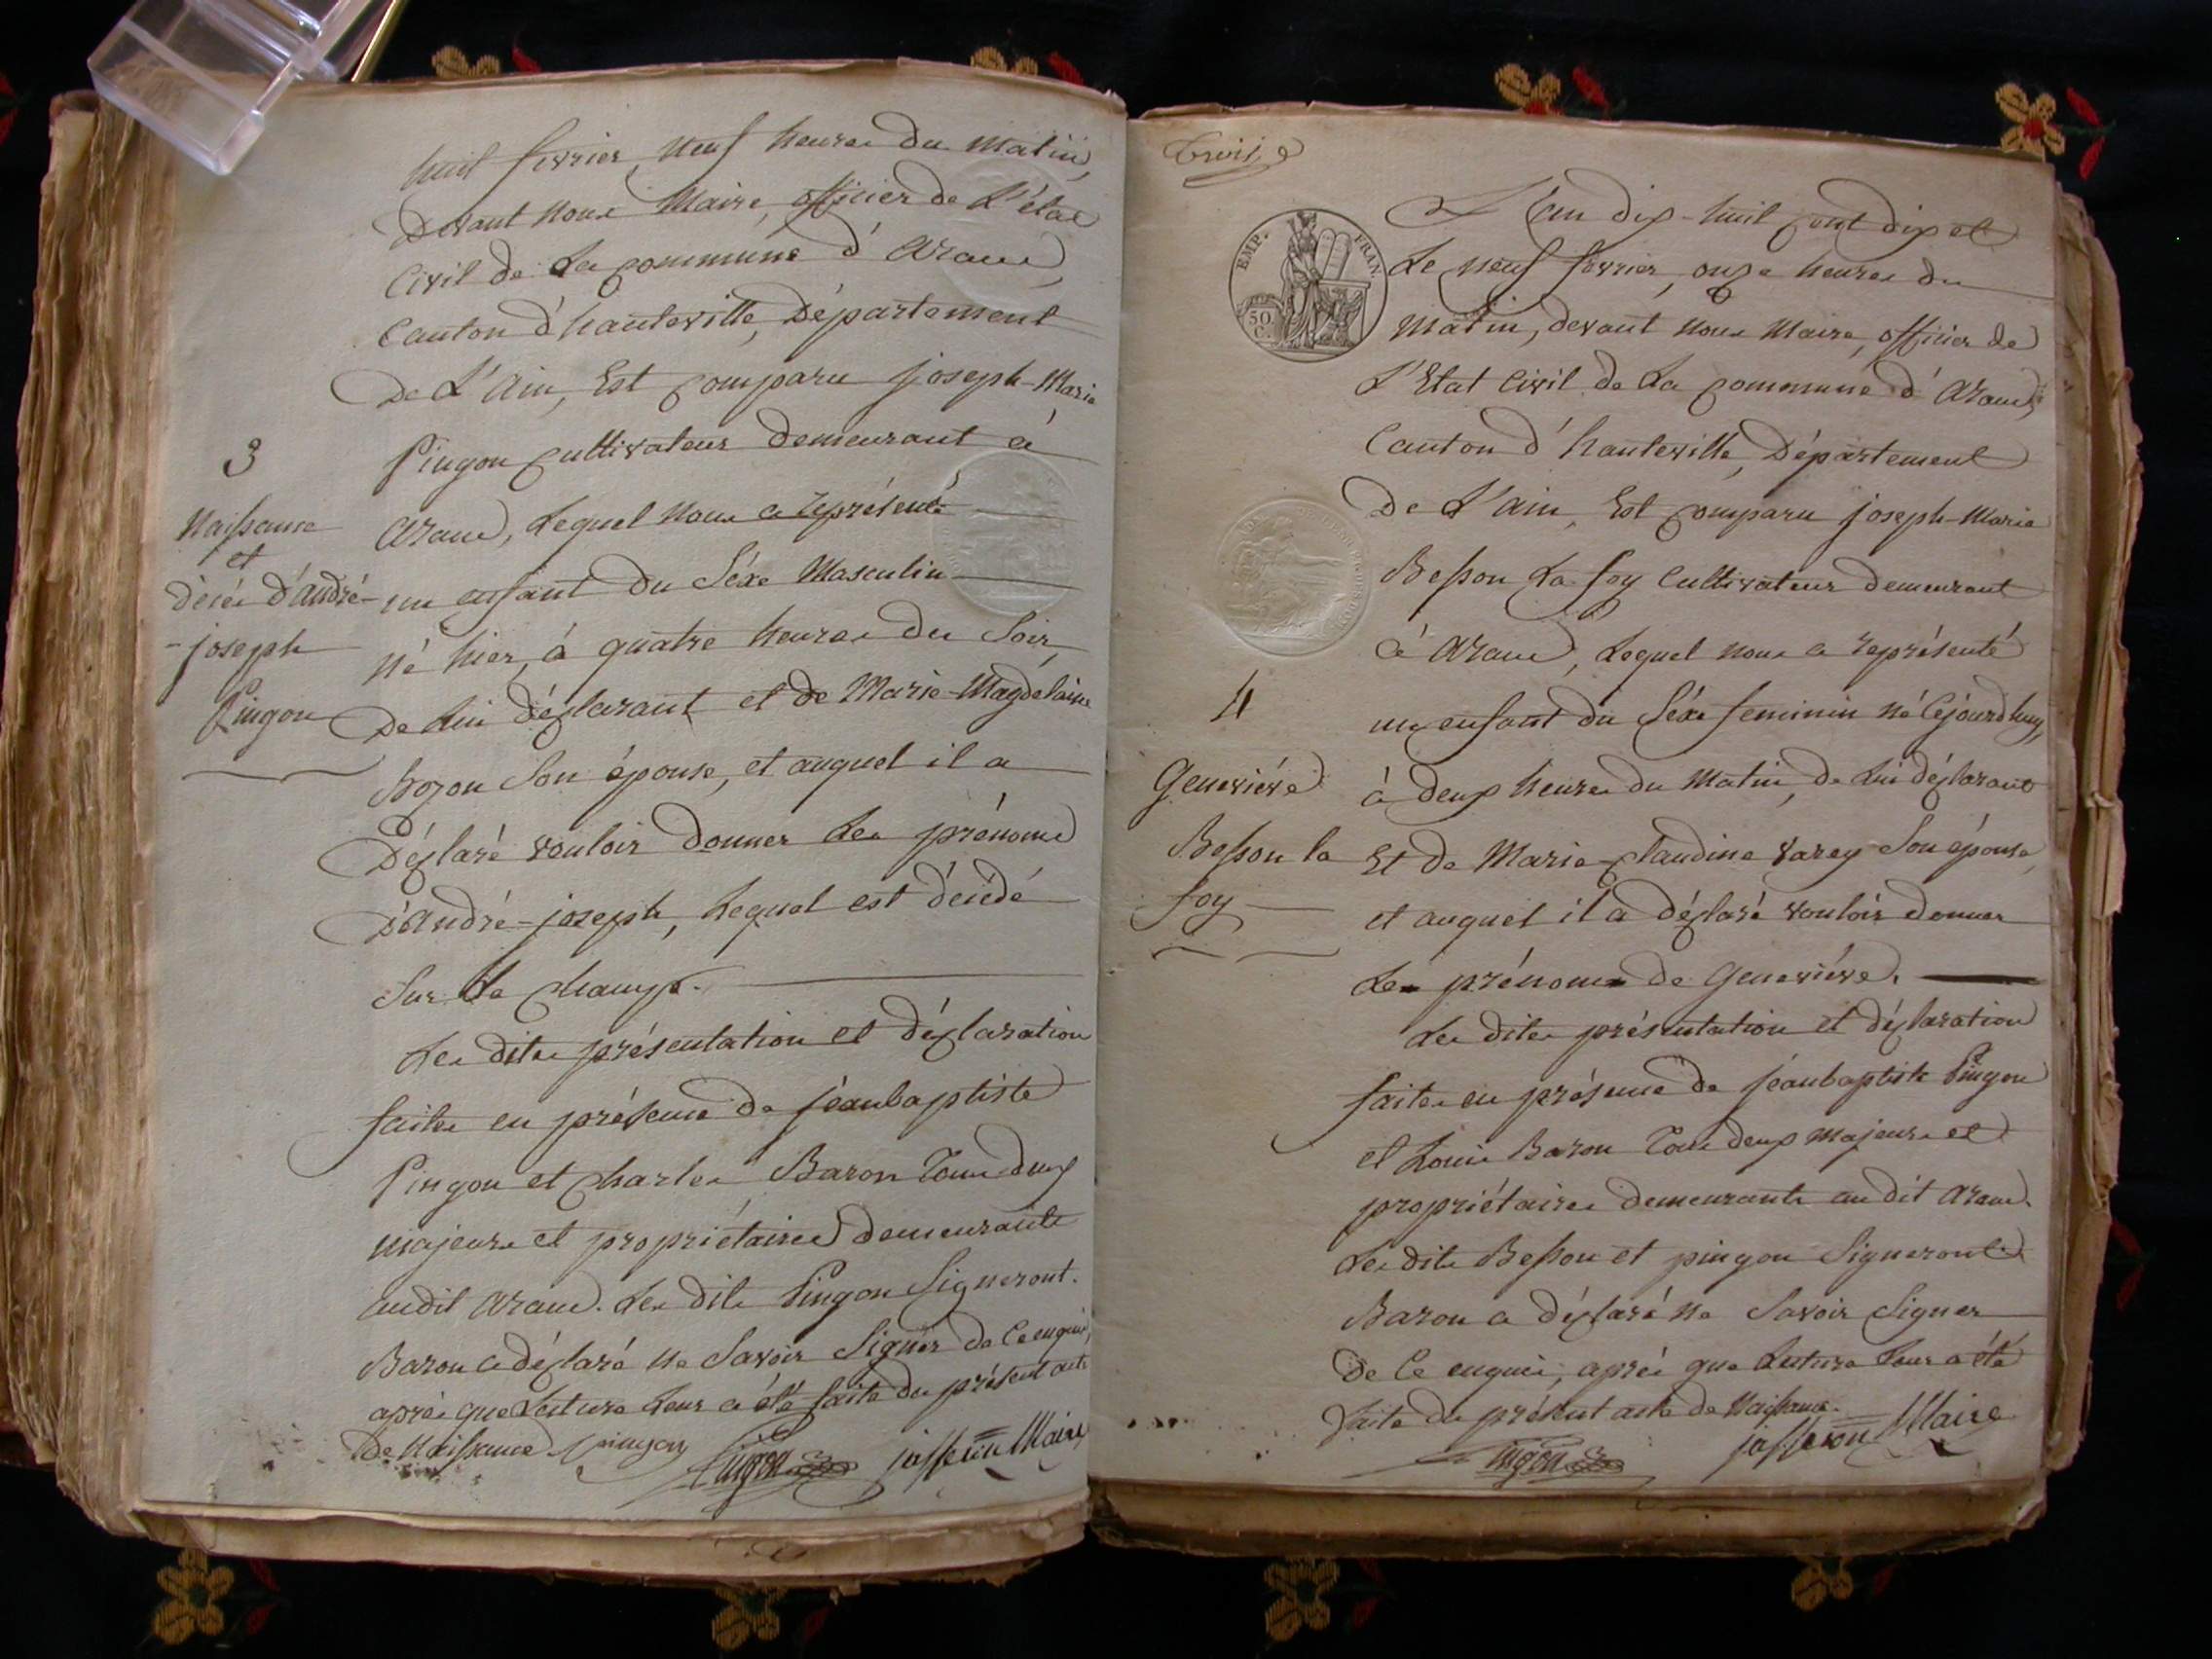 huit fevrier, neuf heures du matin,
Devant nous Maire, officier de L'état
Civil de La commune d' aranc,
Canton d'hauteville, Département
De L'ain, Est comparu joseph-Marie
Pingon cultivateur demeurant à
aranc, Lequel nous a représenté
un enfant du Séxe Masculin
né hier, à quatre heures du Soir,
De Lui déclarant et de Marie-Magdelaine
Bozon Son épouse, et auquel il a
Déclaré vouloir donner les prénoms
D'andré-joseph, Lequel est décédé
Sur Le champ.
Les dites présentation et déclaration
faites en présence de jeanbaptiste
Pingon et charles Baron Tous deux
majeurs et propriétaires demeurants
audit aranc. Les dits Pingon Signeront.
Baron a déclaré ne Savoir Signer de Ce enquis,
après que Lecture Leur a été faite du présent acte
de Naissance pingon Pingon jasseron Maire
3
Naissance
et
décès d'andré-
-joseph
Pingon
Troise
EMP. FRAN.
50
C.
L'an dix-huit cent dix et
Le neuf fevrier, onze heures du
matin, devant nous Maire, officier de
L'Etat Civil de La commune d' aranc,
Canton d'hauteville, Département
De L'ain, Est comparu joseph-Marie
Besson La foy Cultivateur demeurant
à aranc, Lequel nous a représenté
un enfant du Séxe feminin né Cejourd'huy,
à deux heures du Matin, de Lui déclarant
Et de Marie-claudine varey Son épouse,
et auquel il a déclaré vouloir donner
Les prénoms de Geneviéve.
Les dites présentation et déclaration
faites en présence de jeanbaptiste Pingon
et Louis Baron Tous deux Majeurs et
propriétaires demeurants au dit aranc.
Les dits Besson et pingon Signeront
Baron a déclaré ne Savoir Signer
de Ce enquis, après que Lecture Leur a été
faite du présent acte de Naissance.
Pingon jasseron Maire
4
Geneviéve
Besson la
foy